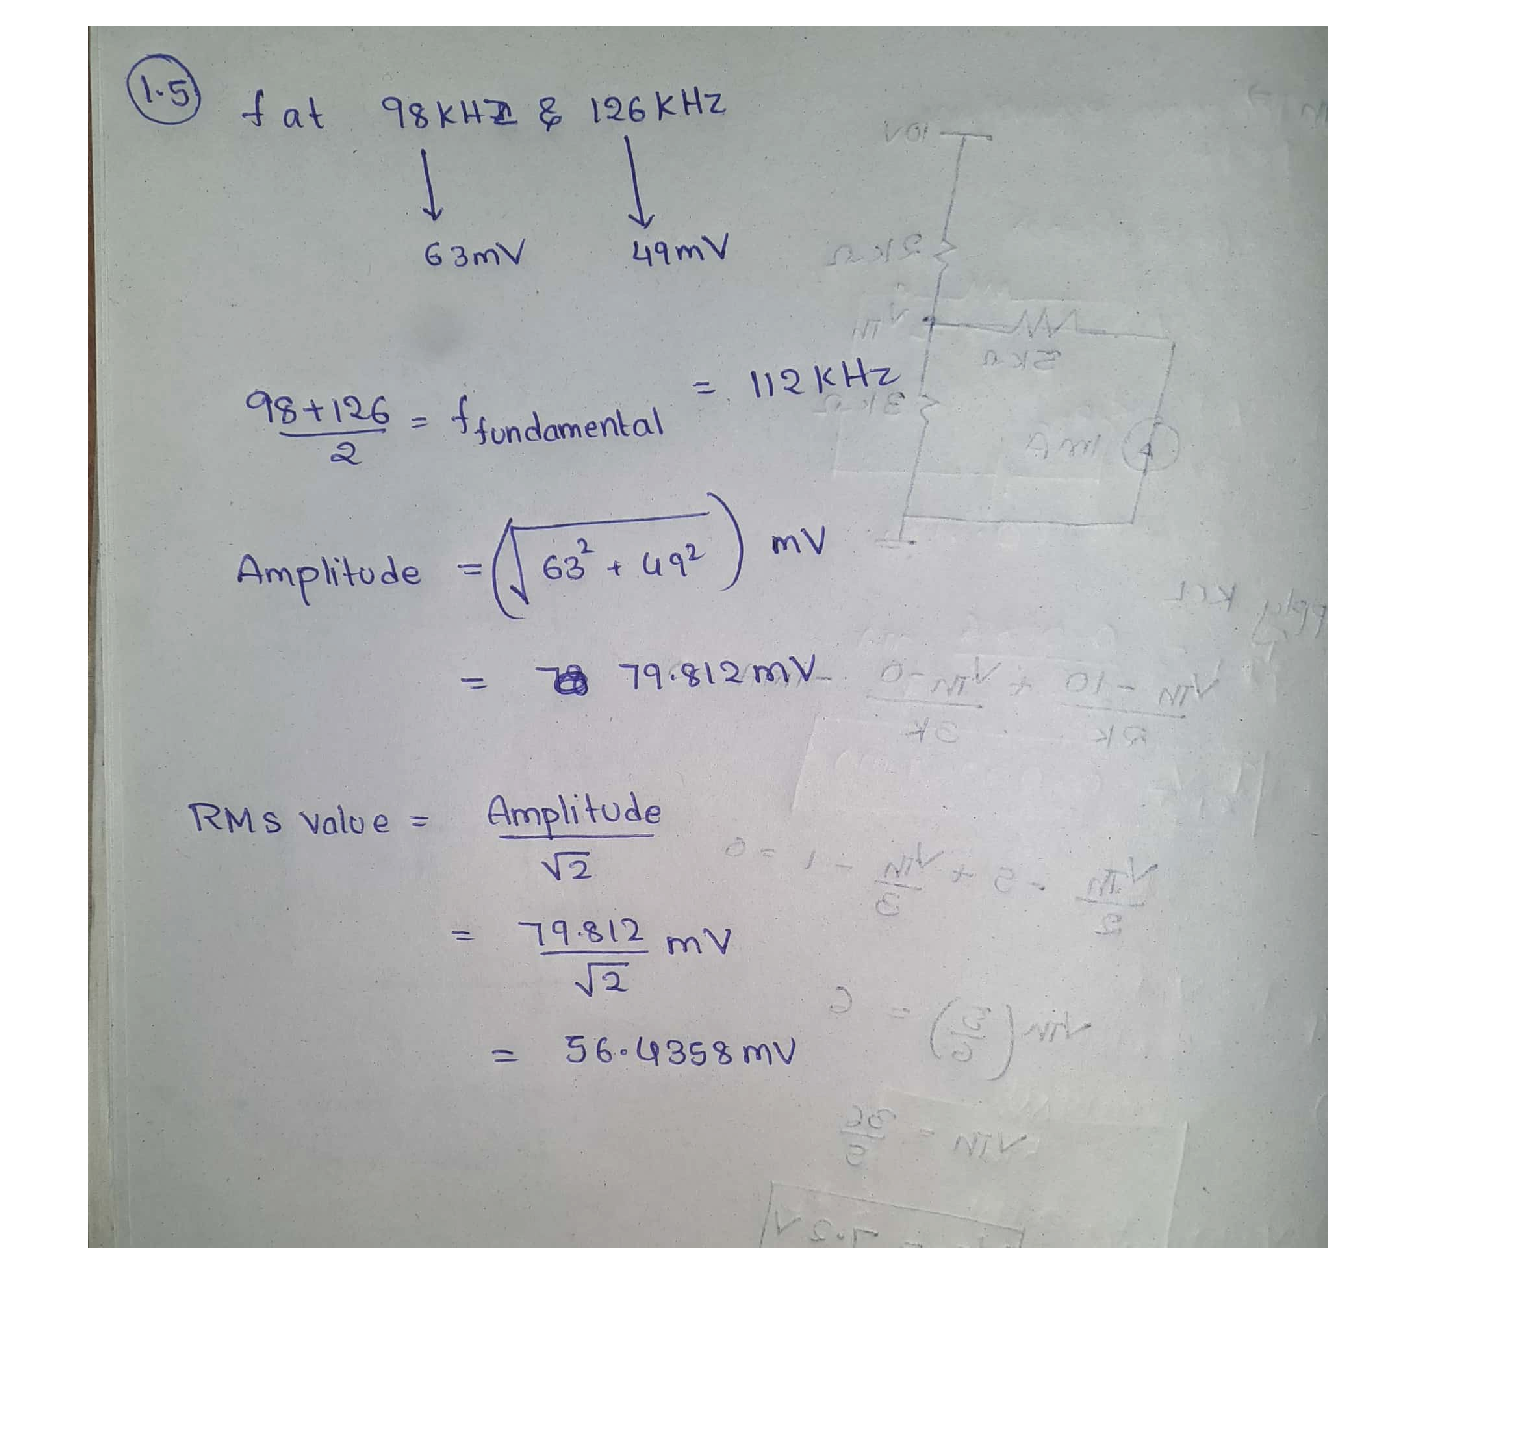 1.5 f at 98 KHz & 126 KHz
63mV 49mV
98+126/2 = f fundamental = 112 KHz
Amplitude = (√63² + 49²) mV
= 79.812 mV
RMS Value = Amplitude/√2
= 79.812/√2 mV
= 56.4358 mV